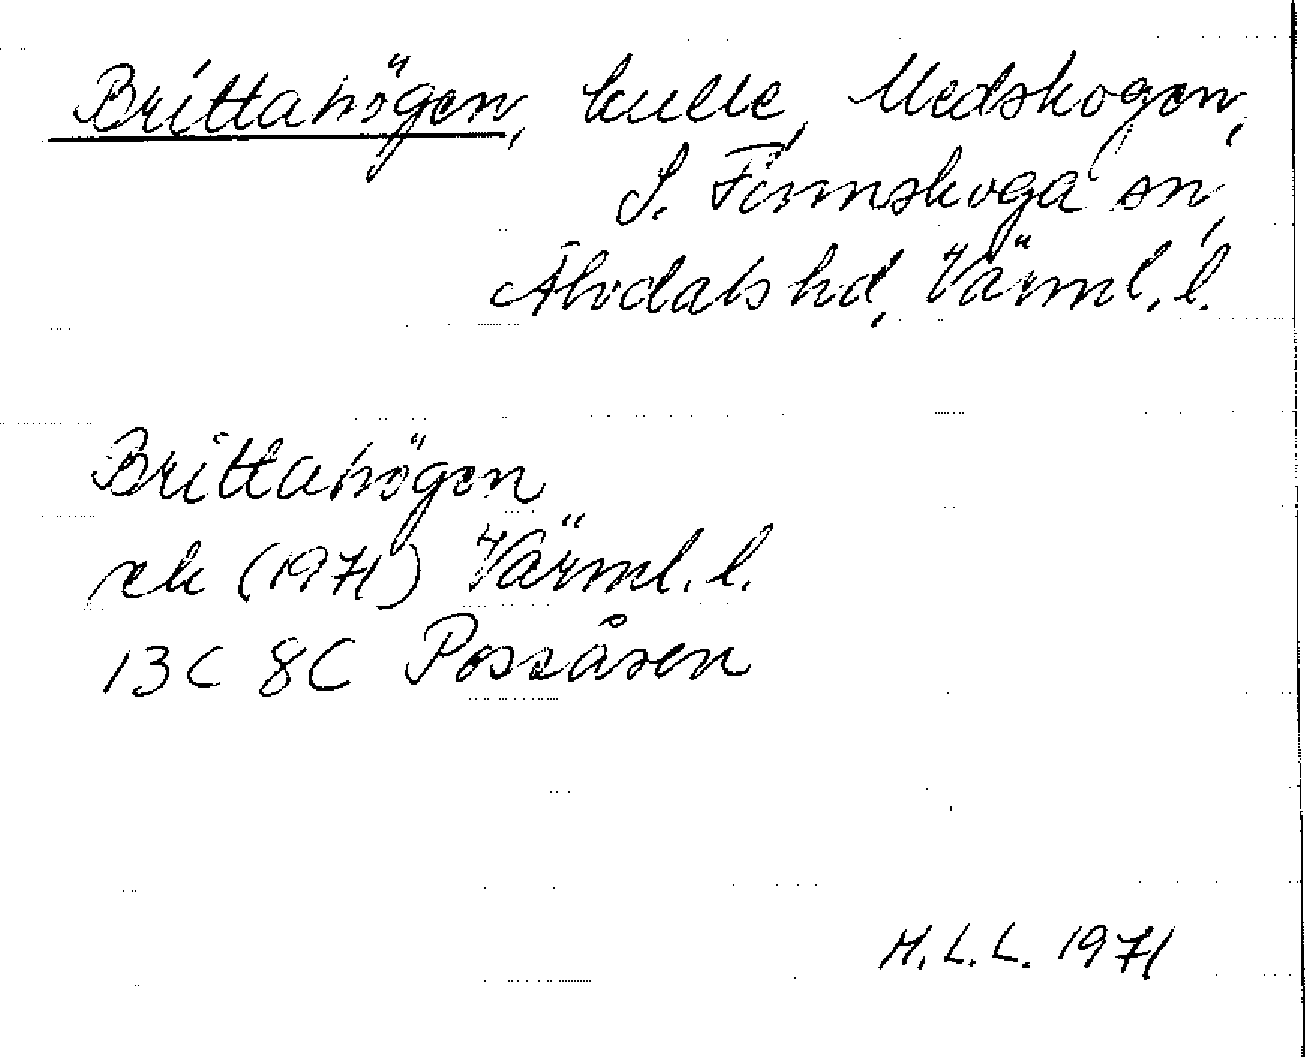 Brittahögen, kulle, Medskogen,
S. Finnskoga sn,
Älvdals hd, Värml. l.
Brittahögen
rek (1971) Värml. l.
13C 8C Possåsen
H.L.L. 1971